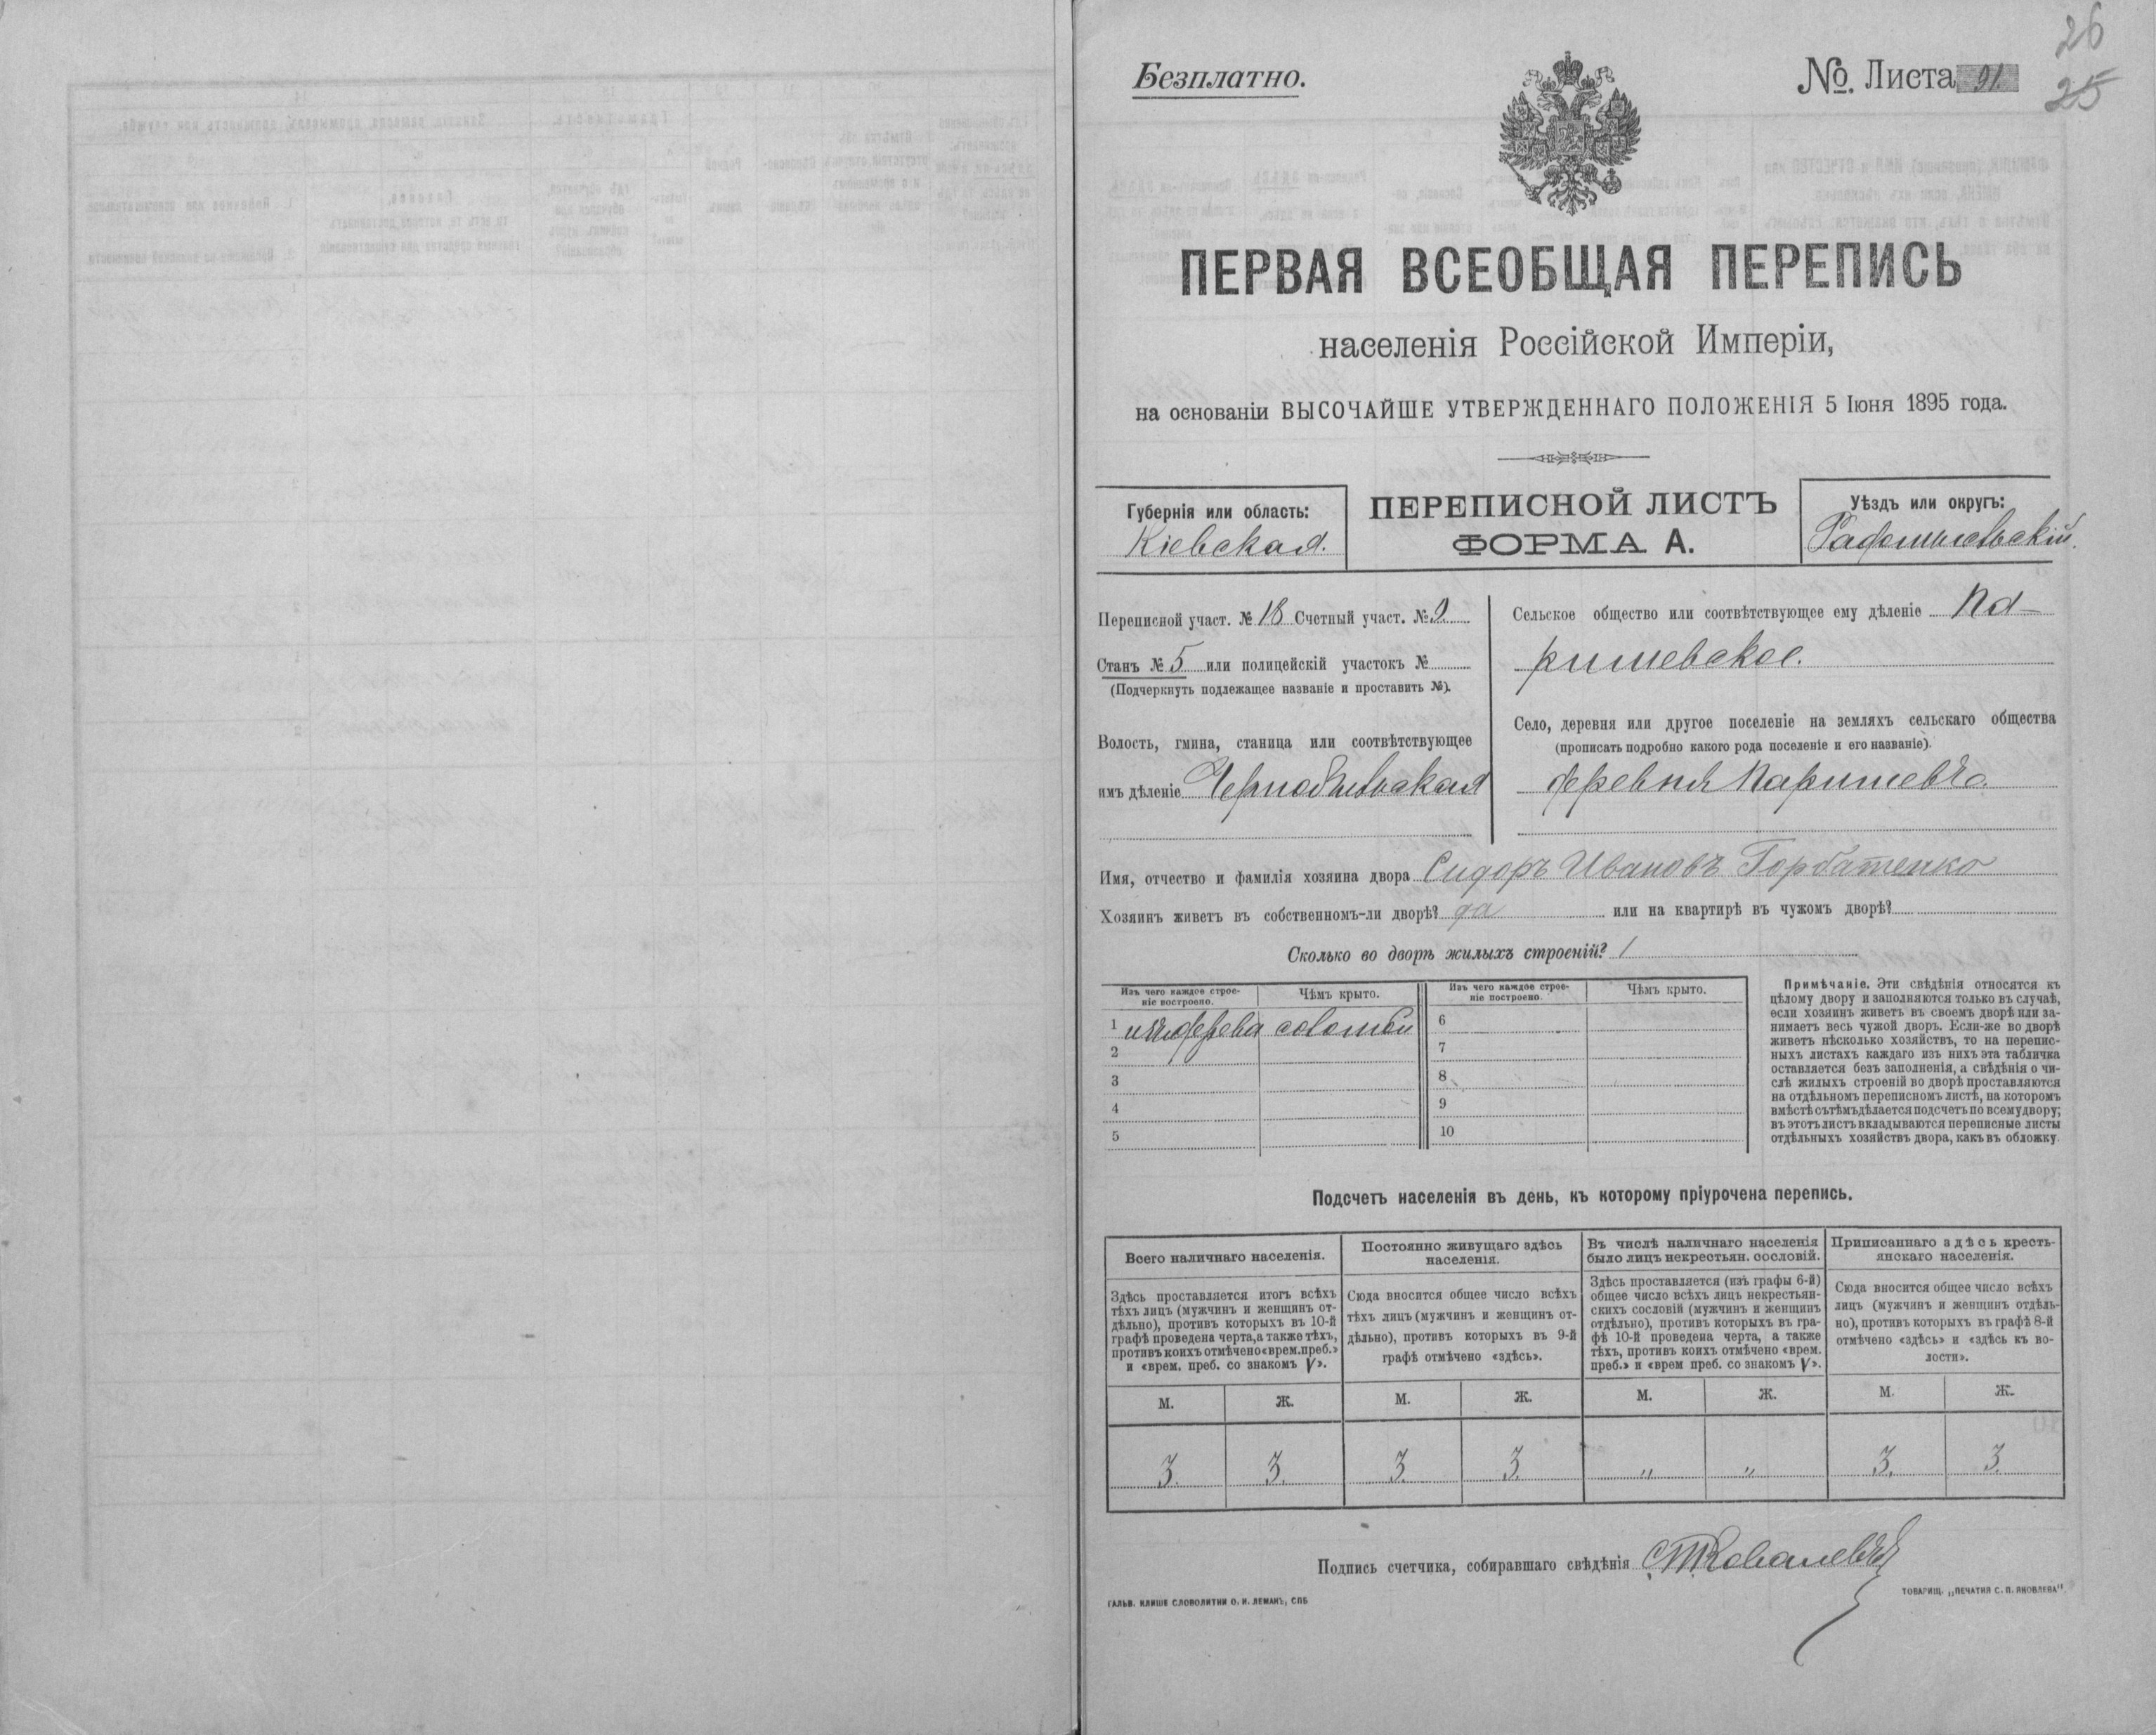 26
25
Безплатно.
№ Листа 91.
ПЕРВАЯ ВСЕОБЩАЯ ПЕРЕПИСЬ
населенія Россійской Имперіи,
на основаніи ВЫСОЧАЙШЕ УТВЕРЖДЕННАГО ПОЛОЖЕНІЯ 5 Іюня 1895 года.
Губернія или область:
Кіевская.
ПЕРЕПИСНОЙ ЛИСТЪ
ФОРМА А.
Уѣздъ или округъ:
Радомысльскій.
Переписной участ. № 18 Счетный участ. № 9.
Станъ № 5 или полицейскій участокъ №
(Подчеркнуть подлежащее названіе и проставить №).
Волость, гмина, станица или соотвѣтствующее
имъ дѣленіе Чернобыльская
Сельское общество или соотвѣтствующее ему дѣленіе Па-
ришевское.
Село, деревня или другое поселеніе на земляхъ сельскаго общества
(прописать подробно какого рода поселеніе и его названіе).
деревня Паришевъ.
Имя, отчество и фамилія хозяина двора Сидоръ Ивановъ Горбатенко
Хозяинъ живетъ въ собственномъ-ли дворѣ? да или на квартирѣ въ чужомъ дворѣ?
Сколько во дворѣ жилыхъ строеній? 1
Изъ чего каждое строе-
ніе построено.
Чѣмъ крыто.
Изъ чего каждое строе-
ніе построено.
Чѣмъ крыто.
1 изъ дерева соломой
2
3
4
5
6
7
8
9
10
Примѣчаніе. Эти свѣдѣнія относятся къ
цѣлому двору и заполняются только въ случаѣ,
если хозяинъ живетъ въ своемъ дворѣ или за-
нимаетъ весь чужой дворъ. Если-же во дворѣ
живетъ нѣсколько хозяйствъ, то на перепис-
ныхъ листахъ каждаго изъ нихъ эта табличка
оставляется безъ заполненія, а свѣдѣнія о чи-
слѣ жилыхъ строеній во дворѣ проставляются
на отдѣльномъ переписномъ листѣ, на которомъ
вмѣстѣ съ тѣмъ дѣлается подсчетъ по всему двору;
въ этотъ листъ вкладываются переписные листы
отдѣльныхъ хозяйствъ двора, какъ въ обложку.
Подсчетъ населенія въ день, къ которому пріурочена перепись.
Всего наличнаго населенія.
Здѣсь проставляется итогъ всѣхъ
тѣхъ лицъ (мужчинъ и женщинъ от-
дѣльно), противъ которыхъ въ 10-й
графѣ проведена черта, а также тѣхъ,
противъ коихъ отмѣчено «врем. преб.»
и «врем. преб. со знакомъ V».
Постоянно живущаго здѣсь
населенія.
Сюда вносится общее число всѣхъ
тѣхъ лицъ (мужчинъ и женщинъ от-
дѣльно), противъ которыхъ въ 9-й
графѣ отмѣчено «здѣсь».
Въ числѣ наличнаго населенія
было лицъ некрестьян. сословій.
Здѣсь проставляется (изъ графы 6-й)
общее число всѣхъ лицъ некрестьян-
скихъ сословій (мужчинъ и женщинъ
отдѣльно), противъ которыхъ въ гра-
фѣ 10-й проведена черта, а также
тѣхъ, противъ коихъ отмѣчено «врем.
преб.» и «врем преб. со знакомъ V».
Приписаннаго здѣсь кресть-
янскаго населенія.
Сюда вносится общее число всѣхъ
лицъ (мужчинъ и женщинъ отдѣль-
но), противъ которыхъ въ графѣ 8-й
отмѣчено «здѣсь» и «здѣсь къ во-
лости».
М. Ж. М. Ж. М. Ж. М. Ж.
3. 3. 3. 3. " " 3. 3.
Подпись счетчика, собиравшаго свѣдѣнія
ГАЛЬВ. КЛИШЕ СЛОВОЛИТНИ О. И. ЛЕМАНЪ, СПБ
ТОВАРИЩ. „ПЕЧАТНЯ С. П. ЯКОВЛЕВА"